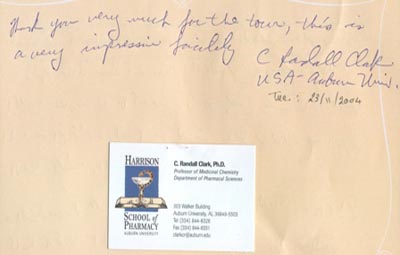 Thank you very much for the tour, this is
a very impressive facility
C Randall Clark
USA - Auburn Univ.
Tue. : 23/11/2004
HARRISON
SCHOOL of
PHARMACY
AUBURN UNIVERSITY
C. Randall Clark, Ph.D.
Professor of Medicinal Chemistry
Department of Pharmacal Sciences
Walker Building
Auburn University, AL 36849-5503
Tel (334) 844-8328
Fax (334) 844-8331
clarkcr@auburn.edu